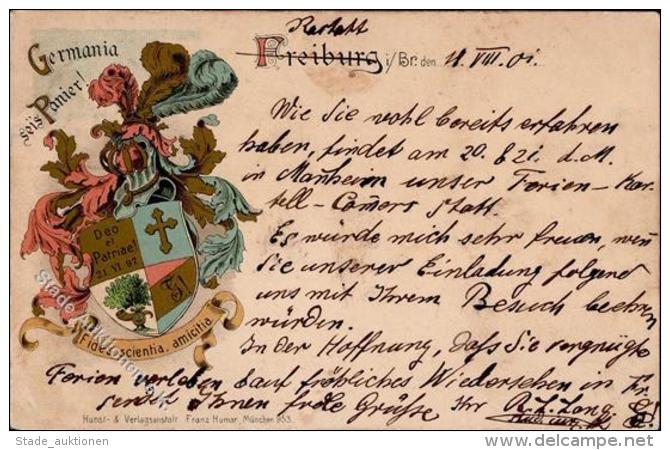 Rastatt
Germania
sei's Panier!
Freiburg i/Br. den 11. VIII. 01.
Wie Sie wohl bereits erfahren
haben, findet am 20. & 21. d. M.
in Manheim unser Ferien-Kar-
tell-Comers statt.
Es würde mich sehr freuen, wenn
Sie unserer Einladung folgend
uns mit Ihrem Besuch beehren
würden.
In der Hoffnung, dass Sie vergnügte
Ferien verleben & auf fröhliches Wiedersehen in Fr.
sendet Ihnen frdle Grüsse Ihr
Deo
et
Patriae!
21. VI. 97
Fides, scientia, amicitia
Kunst- & Verlagsanstalt Franz Humar, München 953.
Stade_auktionen